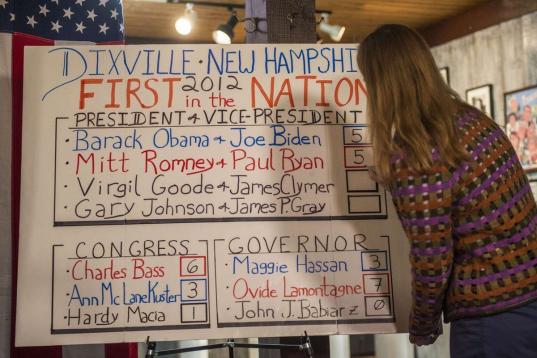 DIXVILLE · NEW HAMPSHI
2012
FIRST in the NATION
PRESIDENT & VICE-PRESIDENT
· Barack Obama & Joe Biden 5
· Mitt Romney & Paul Ryan 5
· Virgil Goode & James Clymer
· Gary Johnson & James P. Gray
CONGRESS
· Charles Bass 6
· Ann McLane Kuster 3
· Hardy Macia 1
GOVERNOR
· Maggie Hassan 3
· Ovide Lamontagne 7
· John J. Babiarz 0